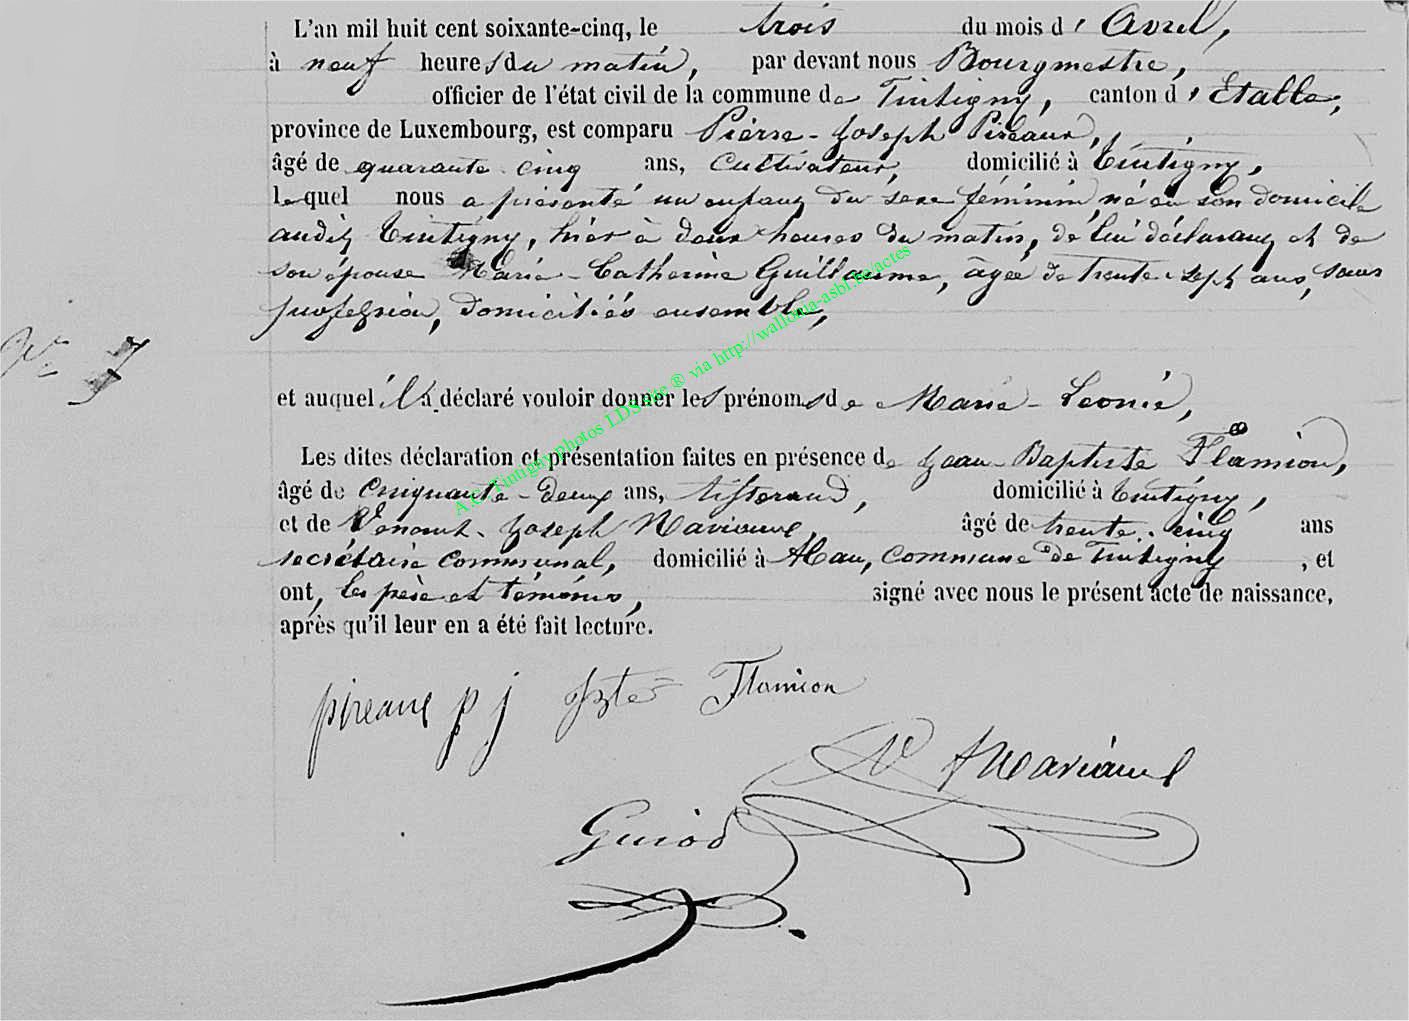 L'an mil huit cent soixante-cinq, le trois du mois d' Avril,
à neuf heures du matin, par devant nous Bourgmestre,
officier de l'état civil de la commune de Tintigny, canton d' Etalle,
province de Luxembourg, est comparu Pierre-Joseph Pireaux,
âgé de quarante cinq ans, cultivateur, domicilié à Tintigny,
lequel nous a présenté un enfant du sexe féminin, né en son domicile
audit Tintigny, hier à deux heures du matin, de lui déclarant et de
son épouse Marie-Catherine Guillaume, âgée de trente-sept ans, sans
profession, domiciliés ensemble,
et auquel il a déclaré vouloir donner les prénoms de Marie-Léonie,
Les dites déclaration et présentation faites en présence de Jean-Baptiste Flamion,
âgé de cinquante-deux ans, tisserand, domicilié à Tintigny,
et de Venant-Joseph Maviaux, âgé de trente-cinq ans
secrétaire communal, domicilié à Han, commune de Tintigny, et
ont, les père et témoins, signé avec nous le présent acte de naissance,
après qu'il leur en a été fait lecture.
pireaux p j Jbte Flamion
V Maviaux
Guiod
A.C. Tintigny photos LDS site ® via http://wallonia-asbl.be/actes